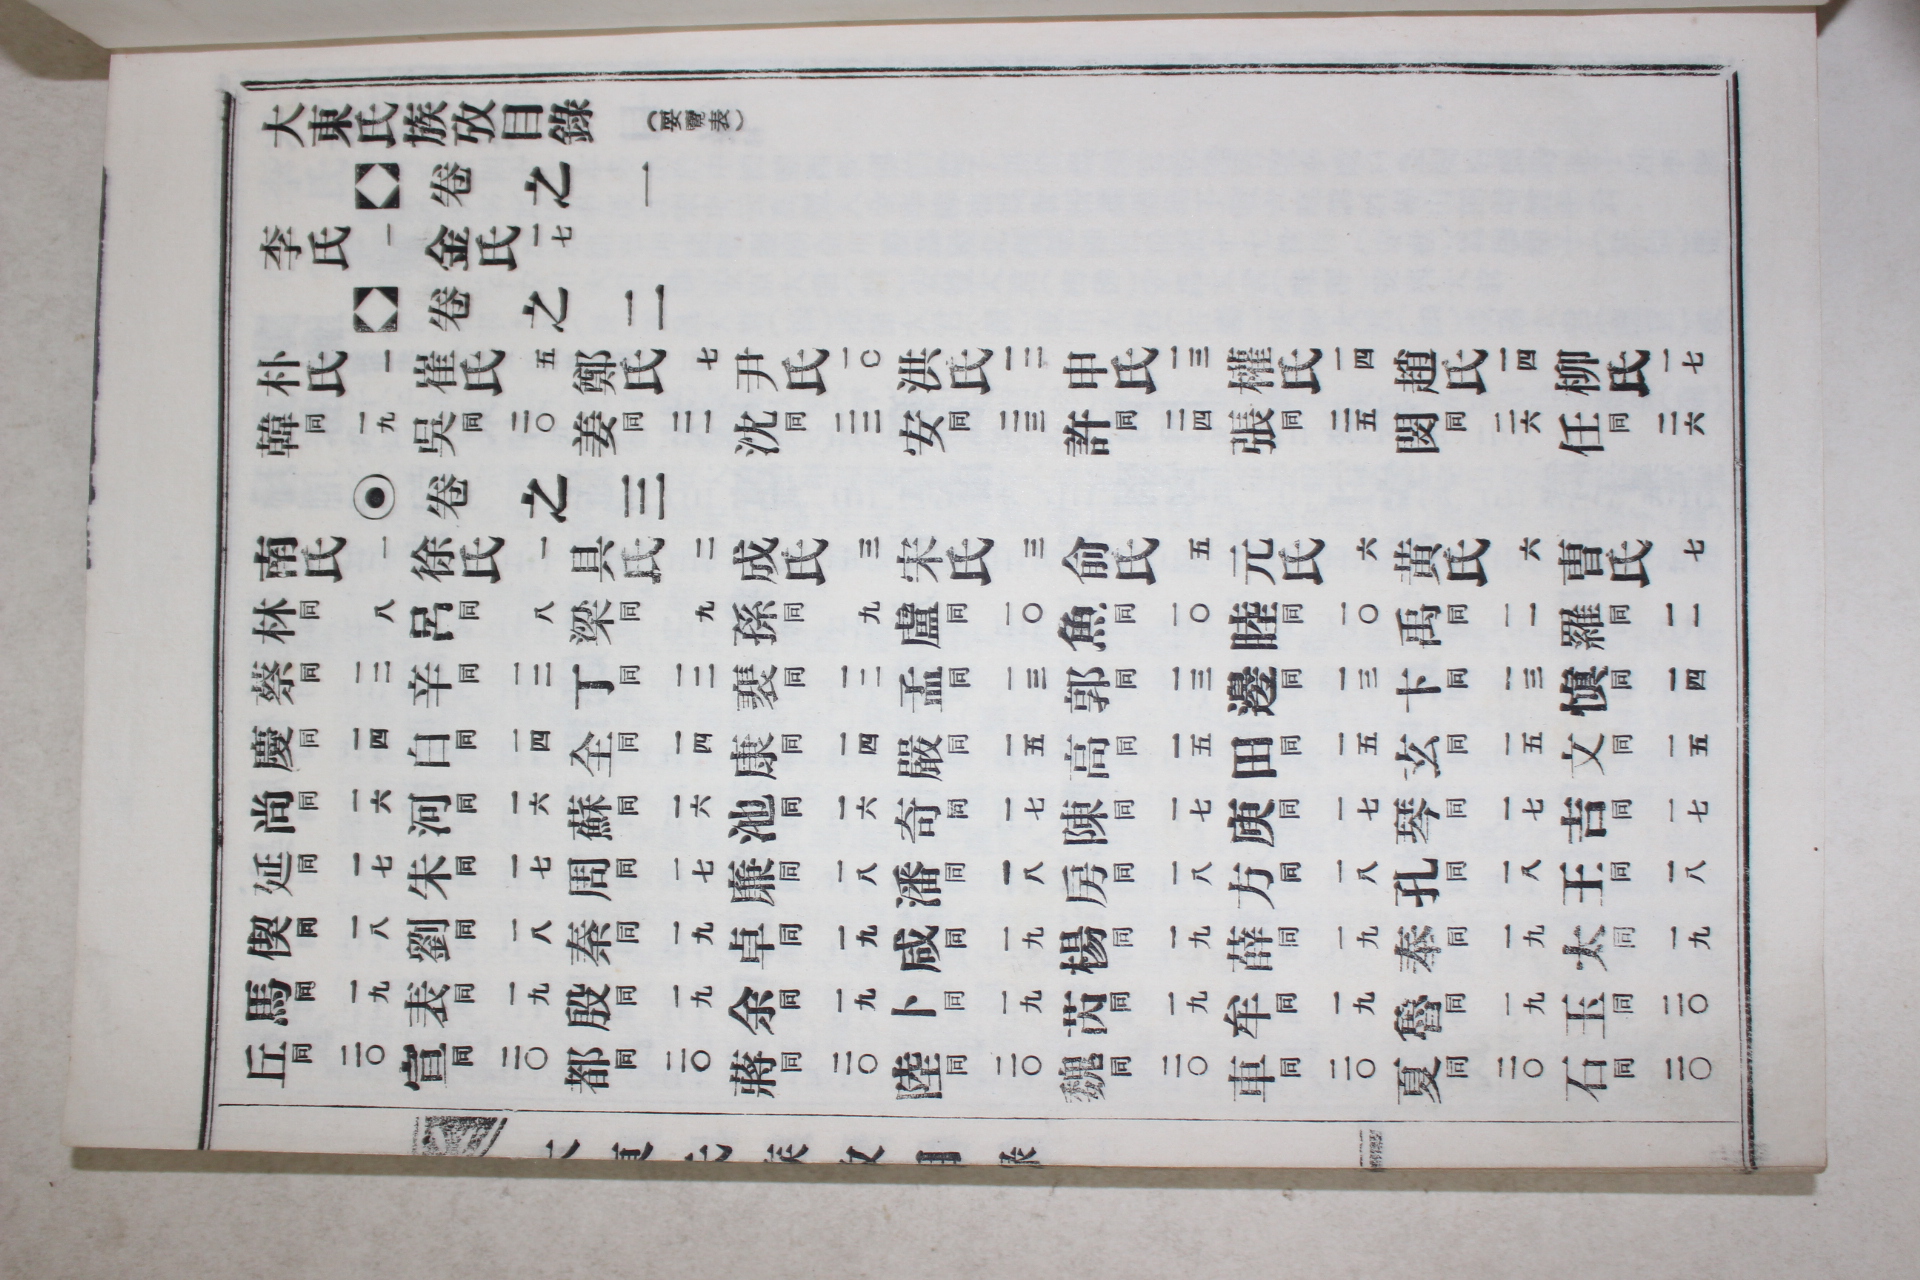 大東氏族攷目錄（要覽表）
卷之一
李氏 一 金氏 一七
卷之二
朴氏 一 崔氏 五 鄭氏 七 尹氏 一〇 洪氏 一二 申氏 一三 權氏 一四 趙氏 一四 柳氏 一七
韓同 一九 吳同 二〇 姜同 二一 沈同 二二 安同 二三 許同 二四 張同 二五 閔同 二六 任同 二六
卷之三
南氏 一 徐氏 一 具氏 二 成氏 三 宋氏 三 俞氏 五 元氏 六 黃氏 六 曹氏 七
林同 八 呂同 八 梁同 九 孫同 九 盧同 一〇 魚同 一〇 睦同 一〇 禹同 一一 羅同 一一
蔡同 一二 辛同 一二 丁同 一二 裵同 一二 孟同 一三 郭同 一三 邊同 一三 卞同 一三 愼同 一四
慶同 一四 白同 一四 全同 一四 康同 一四 嚴同 一五 高同 一五 田同 一五 玄同 一五 文同 一五
尚同 一六 河同 一六 蘇同 一六 池同 一六 奇同 一七 陳同 一七 庾同 一七 琴同 一七 吉同 一七
延同 一七 朱同 一七 周同 一七 廉同 一八 潘同 一八 房同 一八 方同 一八 孔同 一八 王同 一八
偰同 一八 劉同 一八 秦同 一九 卓同 一九 咸同 一九 楊同 一九 薛同 一九 奉同 一九 太同 一九
馬同 一九 表同 一九 殷同 一九 余同 一九 卜同 一九 芮同 一九 牟同 一九 魯同 一九 玉同 二〇
丘同 二〇 宣同 二〇 都同 二〇 蔣同 二〇 陸同 二〇 魏同 二〇 車同 二〇 夏同 二〇 石同 二〇
大東氏族攷目錄